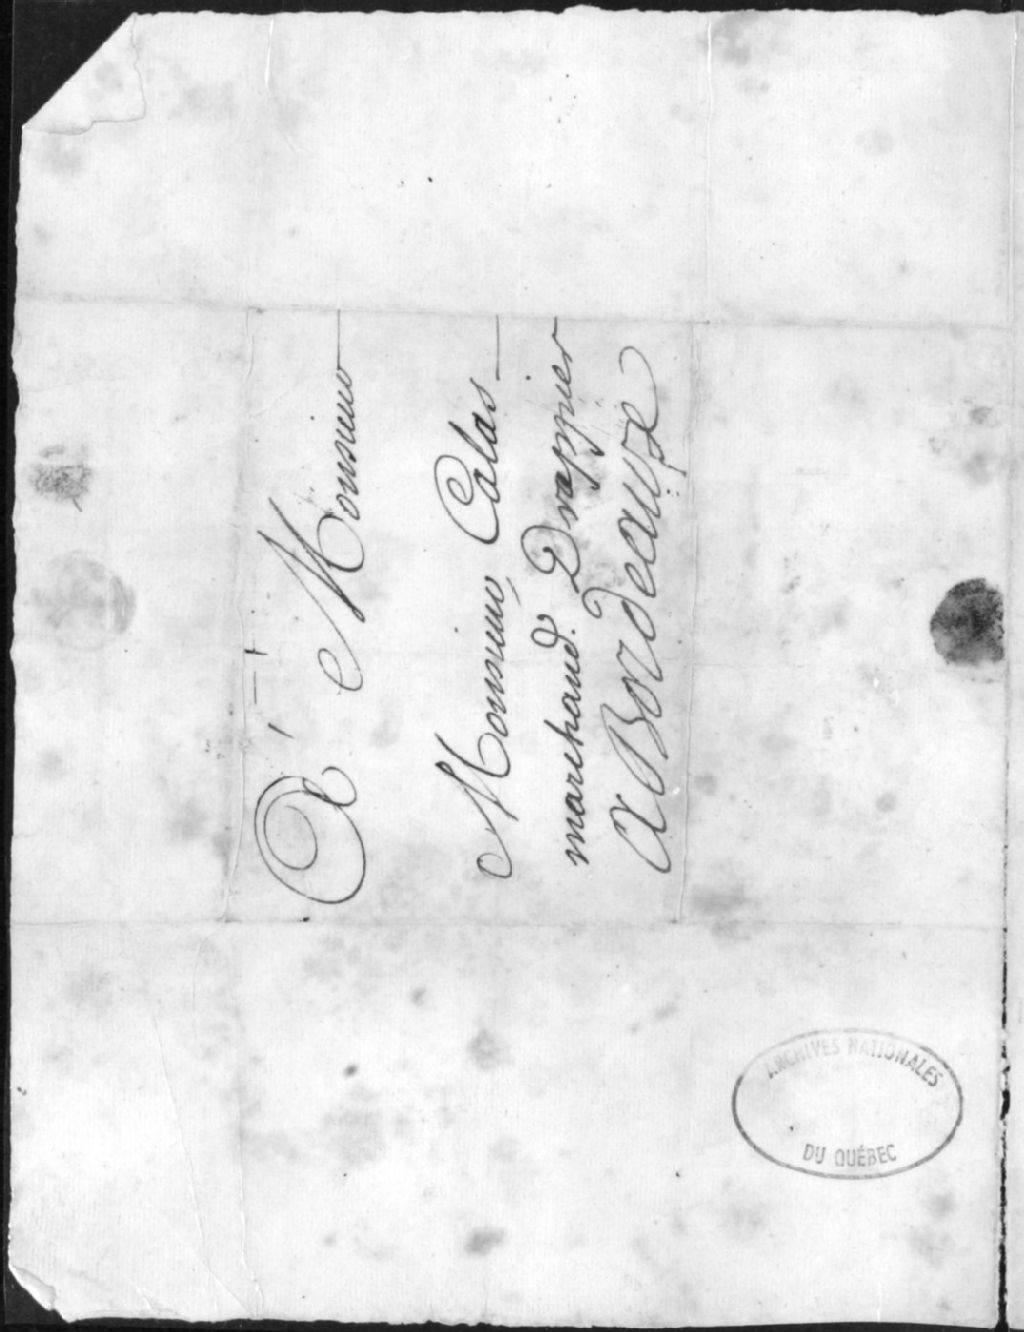 A Monsieur
Monsieur Calas
marchand Drappier
a Bordeauxe
ARCHIVES NATIONALES
DU QUÉBEC